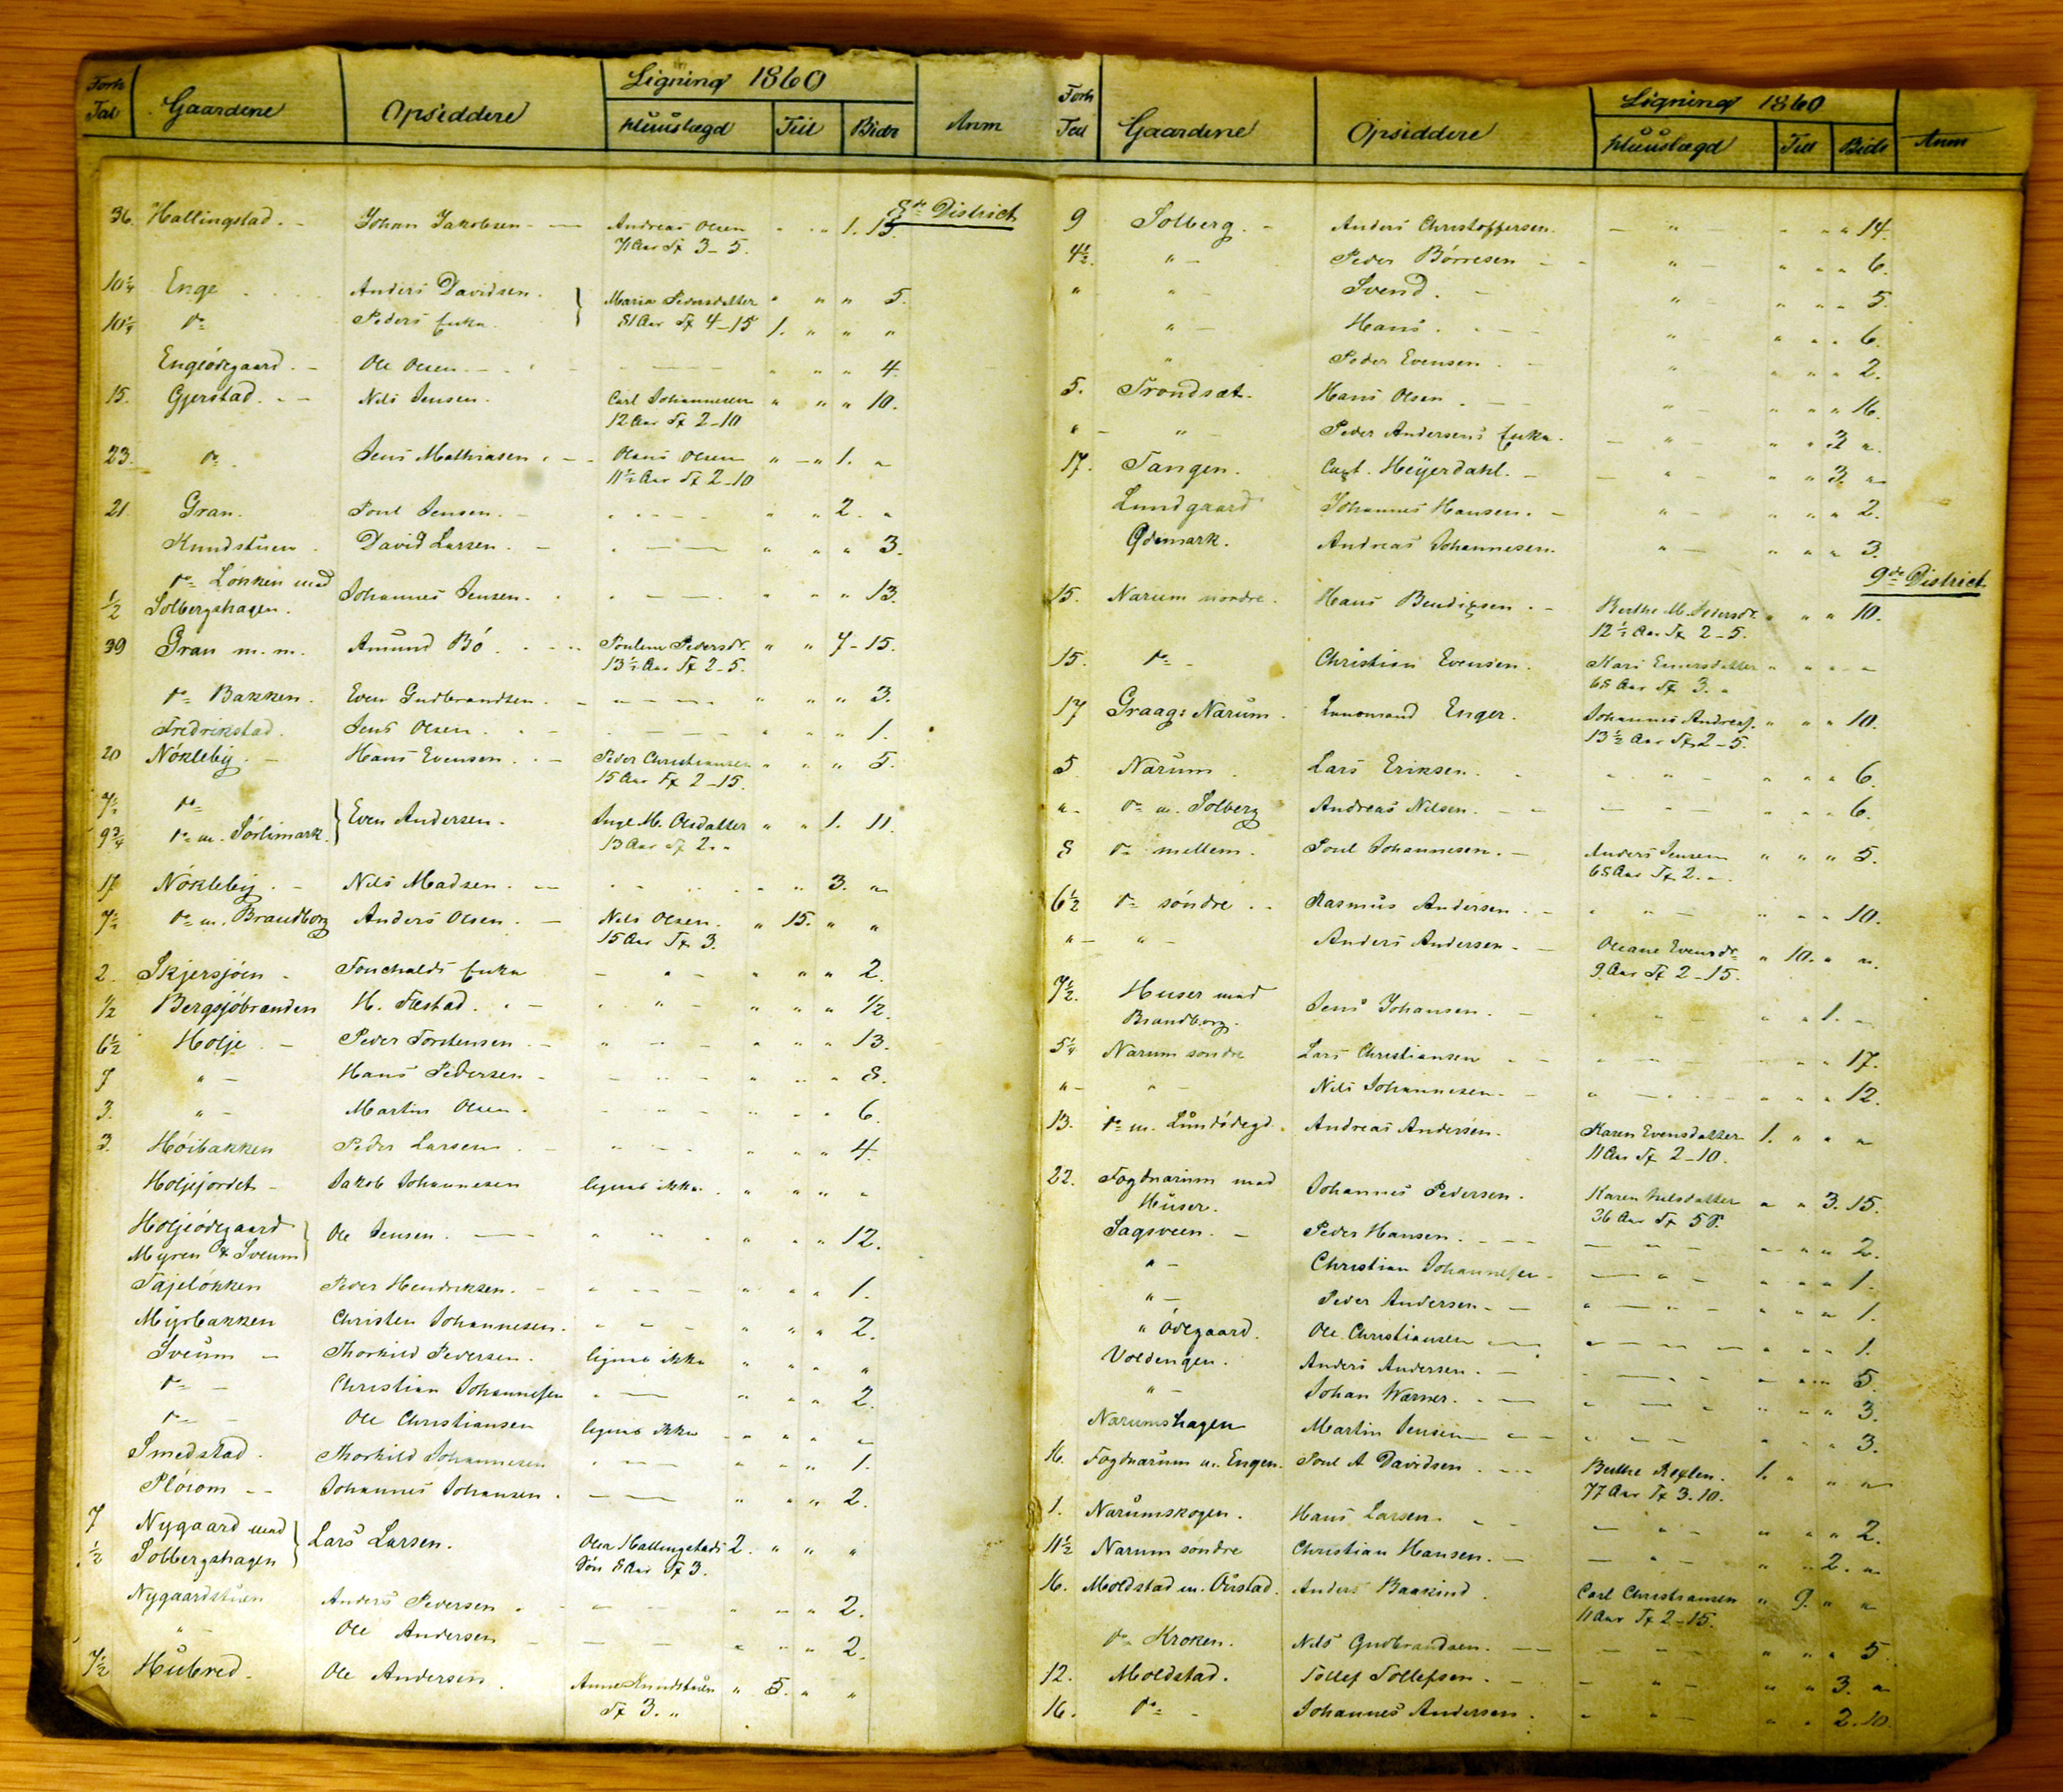 Forh Tal Gaardene Opsiddere Ligning 1860 Huuslægd Teil Bidr Anm
8de District
36. Hallingstad. - Johan Jakobsen - Andreas Olsen " " 1. 15.
71 Aar Sp 3-5.
10 1/4 Enge Anders Davidsen. Maria Pedersdatter " " " 5.
10 1/4 do Peders Enke. 81 Aar Sp 4-15 1. " " "
Engeödegaard. - Ole Olsen " " " 4.
15. Gjerstad. - Nils Jensen. Carl Johannesen " " " 10.
12 Aar Sp 2-10
23. do. Jens Mathiasen. Olaus Olsen " " 1. "
11 1/2 Aar Sp 2-10
21 Gran. Poul Jensen. " " 2. "
Kundstuen. David Larsen. " " " 3.
do Lökken med
1/2 Solbergshagen. Johannes Jensen. " " " 13.
39 Gran m. m. Amund Bö. Pouline Pedersdr. " " 7-15.
13 1/2 Aar Sp 2-5.
do Bakken. Even Gudbrandsen. " " " 3.
Fredrikstad. Jens Olsen. " " " 1.
20 Nökleby. - Hans Evensen. Peder Christiansen " " " 5.
15 Aar Sp 2-15.
7 1/2 do
9 3/4 do m. Sörlimark. Even Andersen. Inge M. Olsdatter " " 1. 11.
13 Aar Sp 2. "
17 Nökleby. - Nils Madsen. " " 3. "
7 1/2 do m. Brandborg Anders Olsen. - Nils Olsen. " 15. " "
15 Aar Sp 3.
2. Skjersjöen - Enke " " " 2.
1/2 Bergsjöbranden H. Fæstad. " " " 1/2.
6 1/2 Holje. - Peder Torstensen. " " " 13.
7 " - Hans Pedersen - " " " 8.
3. " - Martin Olsen. " " " 6.
3. Höibakken Peder Larsen " " " 4.
Holjejordet - Jakob Johannesen lignes ikke. " " " "
Holjeödegaard
Myren & Sveum Ole Jensen. " " " 12.
Tajelökken Peder Hendriksen. - " " " 1.
Myrbakken Christen Johannesen. " " " 2.
Sveum - Thorkild Pedersen. lignes ikke " " " "
do - Christian Johannesen " " " 2.
do - Ole Christiansen lignes ikke " " " "
Smedstad. Thorkild Johannesen " " " 1.
Plöiom - - Johannes Johansen. " " " 2.
7 Nygaard med
1/2 Solbergshagen Lars Larsen. Olea Hallingstads 2. " " "
Sön 8 Aar Sp 3.
Nygaardstuen Anders Pedersen. " " " 2.
" - Ole Andersen " " " 2.
7 1/2 Hubred. Ole Andersen. Anne Kundstuen " 5. " "
Sp 3. "
Forh Tal Gaardene Opsiddere Ligning 1860 Huuslægd Teil Bidr Anm
9 Solberg. - Anders Christoffersen. " " " 14.
4 1/2. " - Peder Börresen " " " 6.
" " - Svend. " " " 5.
" - Hans. " " " 6.
" Peder Evensen. " " " 2.
5. Trondsæt. Hans Olsen. " " " 16.
" - " - Peder Andersens Enke. " " 3 "
17. Tangen. Capt. Heÿerdahl. - " " 3. "
Lundgaard Johannes Hansen. - " " " 2.
Ödemark. Andreas Johannesen. " " " 3.
9de District
15. Narum nordre. Hans Bendixsen. - Berthe M. Pedersdr. " " " 10.
12 1/2 Aar Sp 2-5.
15. do - Christian Evensen. Kari Einersdatter " " " "
68 Aar Sp 3. "
17 Graag: Narum. Enger. Johannes Andreas. " " " 10.
13 1/2 Aar Sp 2-5.
5 Narum. Lars Eriksen. " " " 6.
" - do m. Solberg Andreas Nilsen. " " " 6.
8 do mellem. Poul Johannesen. - Anders Jensen " " " 5.
68 Aar Sp 2. "
6 1/2 do söndre. Rasmus Andersen. " " " 10.
" - " - Anders Andersen. - Oleane Evensdr " 10. " "
9. Aar Sp 2-15.
7 1/2. Huser med
Brandborg. Jens Johansen. " " 1. "
5 1/4 Narum söndre Lars Christiansen " " " 17.
" - " - Nils Johannesen. " " " 12.
13. do m. Lundödegd. Andreas Andersen. Karen Evensdatter 1. " " "
11 Aar Sp 2-10.
22. Fogdnarum med
Huser. Johannes Pedersen. Karen Nilsdatter " " 3. 15.
36 Aar Sp 5
Sagsveen. - Peder Hansen. " " " 2.
" - Christian Johannesen. " " " 1.
" - Peder Andersen. " " " 1.
" Ödegaard. Ole Christiansen " " " 1.
Voldengen. Anders Andersen. " " " 5.
" - Johan Wærner. " " " 3.
Narumshagen Martin Jensen " " " 3.
16. Fogdnarum m. Engen. Poul A Davidsen. Berthe 1. " " "
77 Aar Sp 3.10.
1. Narumskogen. Hans Larsen. " " " 2.
11 1/2 Narum söndre Christian Hansen. - " " 2. "
16. Moldstad m. Anders Baakind. Carl Christiansen " 9. " "
11 Aar Sp 2-15.
do Kroken. Nils Gudbrandsen. " " " 5
12. Moldstad. Tollef Tollefsen. " " 3. "
16. do - Johannes Andersen. " " 2.10.